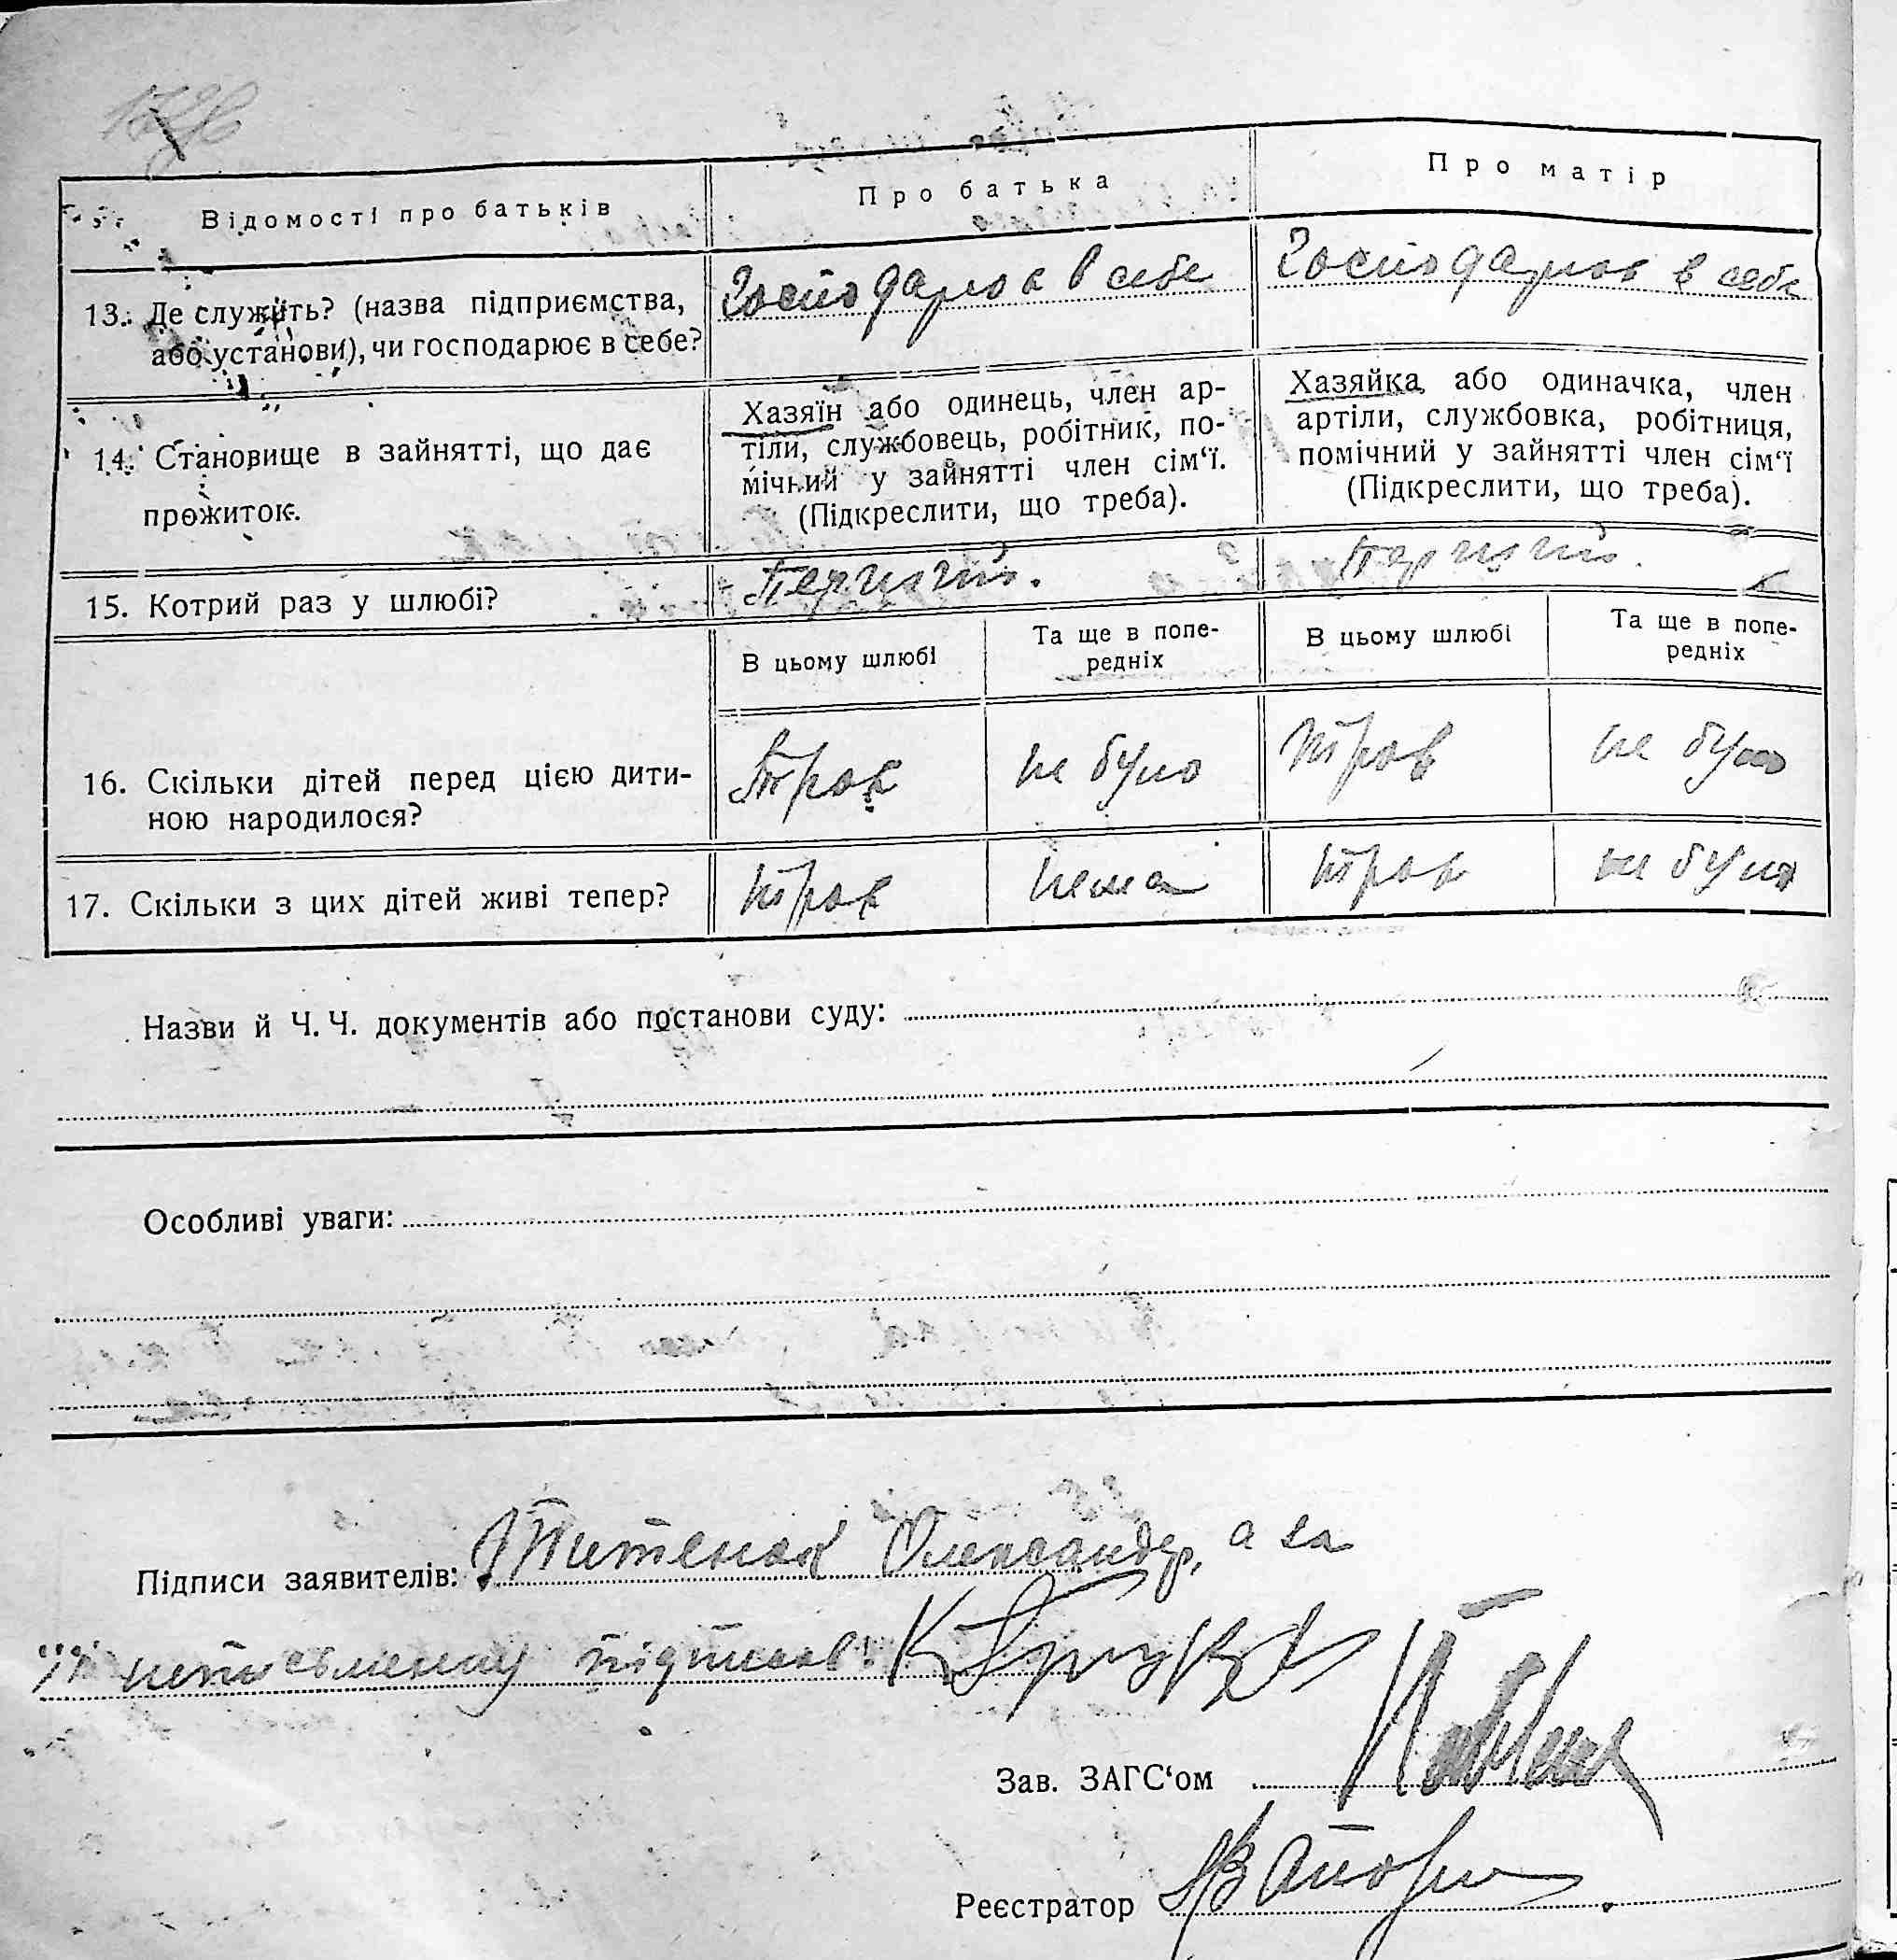 Відомості про батьків
Про батька
Про матір
13. Де служить? (назва підприємства,
або установи), чи господарює в себе?
Господарює в себе
Господарює в себе
14. Становище в зайнятті, що дає
прожиток.
Хазяїн або одинець, член ар-
тіли, службовець, робітник, по-
мічний у зайнятті член сім‘ї.
(Підкреслити, що треба).
Хазяйка або одиначка, член
артіли, службовка, робітниця,
помічний у зайнятті член сім‘ї
(Підкреслити, що треба).
15. Котрий раз у шлюбі?
Перший.
Перший.
В цьому шлюбі
Та ще в попе-
редніх
В цьому шлюбі
Та ще в попе-
редніх
16. Скільки дітей перед цією дити-
ною народилося?
Троє
не було
троє
не було
17. Скільки з цих дітей живі тепер?
троє
нема
троє
не було
Назви й Ч. Ч. документів або постанови суду:
Особливі уваги:
Підписи заявителів: Олександр, а за
неписьменну підписав:
Зав. ЗАГС‘ом
Реєстратор